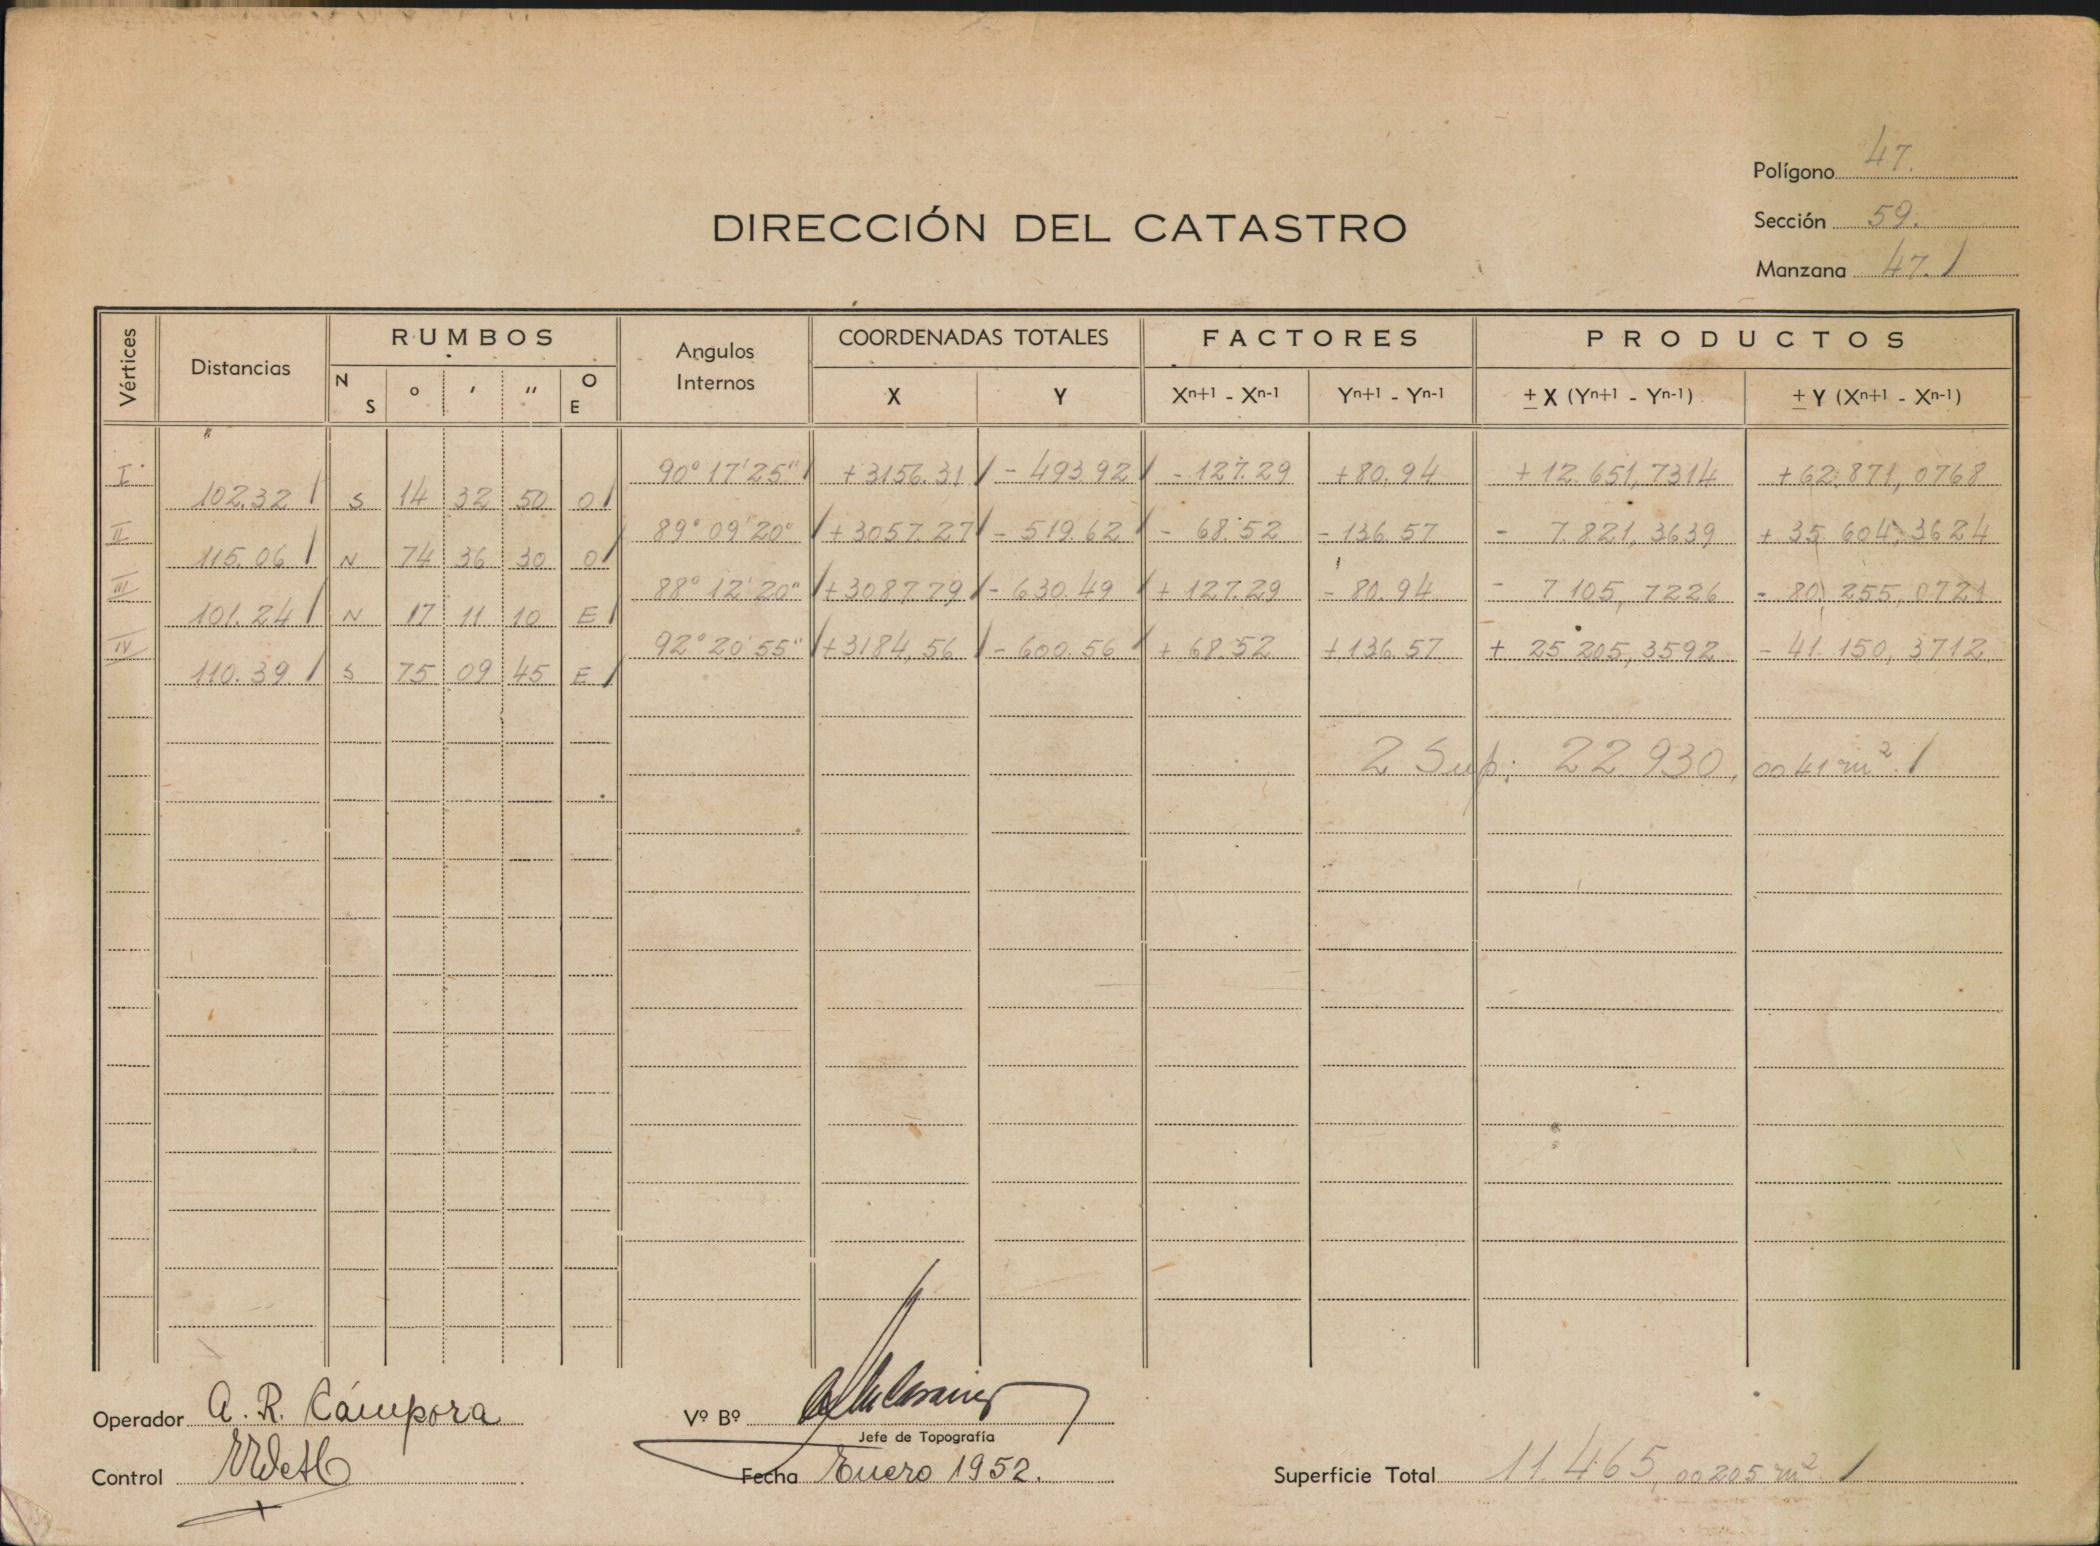 Polígono 47.
DIRECCIÓN DEL CATASTRO
Sección 59.
Manzana 47. /
Vértices Distancias RUMBOS Angulos Internos COORDENADAS TOTALES FACTORES PRODUCTOS
N S ° ' " O E X Y Xn+1 - Xn-1 Yn+1 - Yn-1 ± X (Yn+1 - Yn-1) ± Y (Xn+1 - Xn-1)
I 90° 17' 25" / +3156.31 / - 493.92 / - 127.29 +80.94 + 12.651,7314 +62.871,0768
102.32 / S 14 32 50 O /
II 89° 09' 20" / +3057.27 / - 519.62 / - 68.52 - 136.57 - 7.821,3639 + 35 604,3624
115.06 / N 74 36 30 O /
III 88° 12' 20" / +3087.79 / - 630.49 / + 127.29 - 80.94 - 7 105,7226 - 80 255,0721
101.24 / N 17 11 10 E /
IV 92° 20' 55" / +3184,56 / - 600.56 / + 68.52 +136.57 + 25 205,3592 - 41.150,3712
110.39 / S 75 09 45 E /
2 Sup: 22 930,0041 m² /
Operador A. R. Cámpora
Vº Bº
Jefe de Topografía
Control
Fecha Enero 1952.
Superficie Total 11.465,00205 m² /